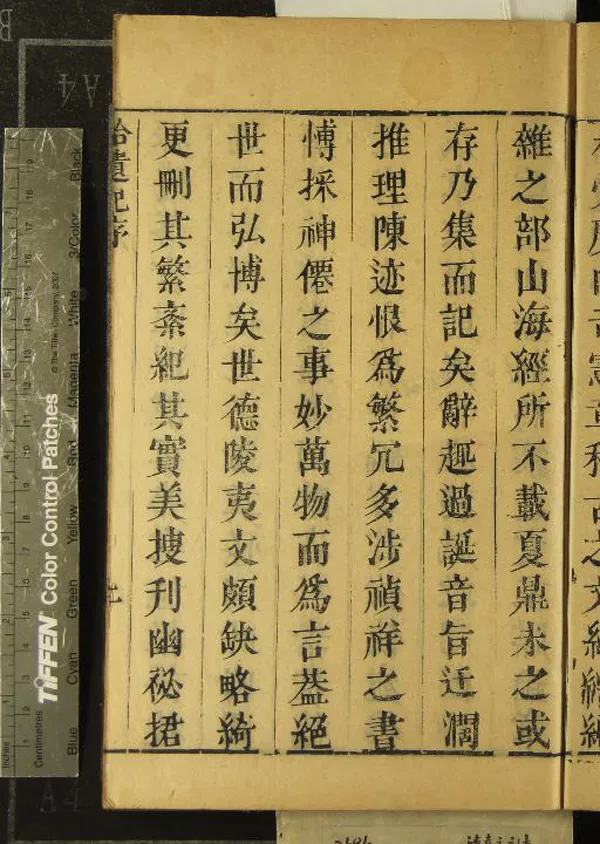 雜之部山海經所不載夏鼎未之或
存乃集而記矣辭趣過誕音旨迂濶
推理陳迹恨爲繁冗多涉禎祥之書
愽採神僊之事妙萬物而爲言葢絕
世而弘博矣世德陵夷文頗缺略綺
更刪其繁紊紀其實美搜刋幽祕捃
拾遺記序
TIFFEN Color Control Patches
© The Tiffen Company, 2007
Blue Cyan Green Yellow Red Magenta White 3/Color Black
Inches
Centimetres
A4
A4
B